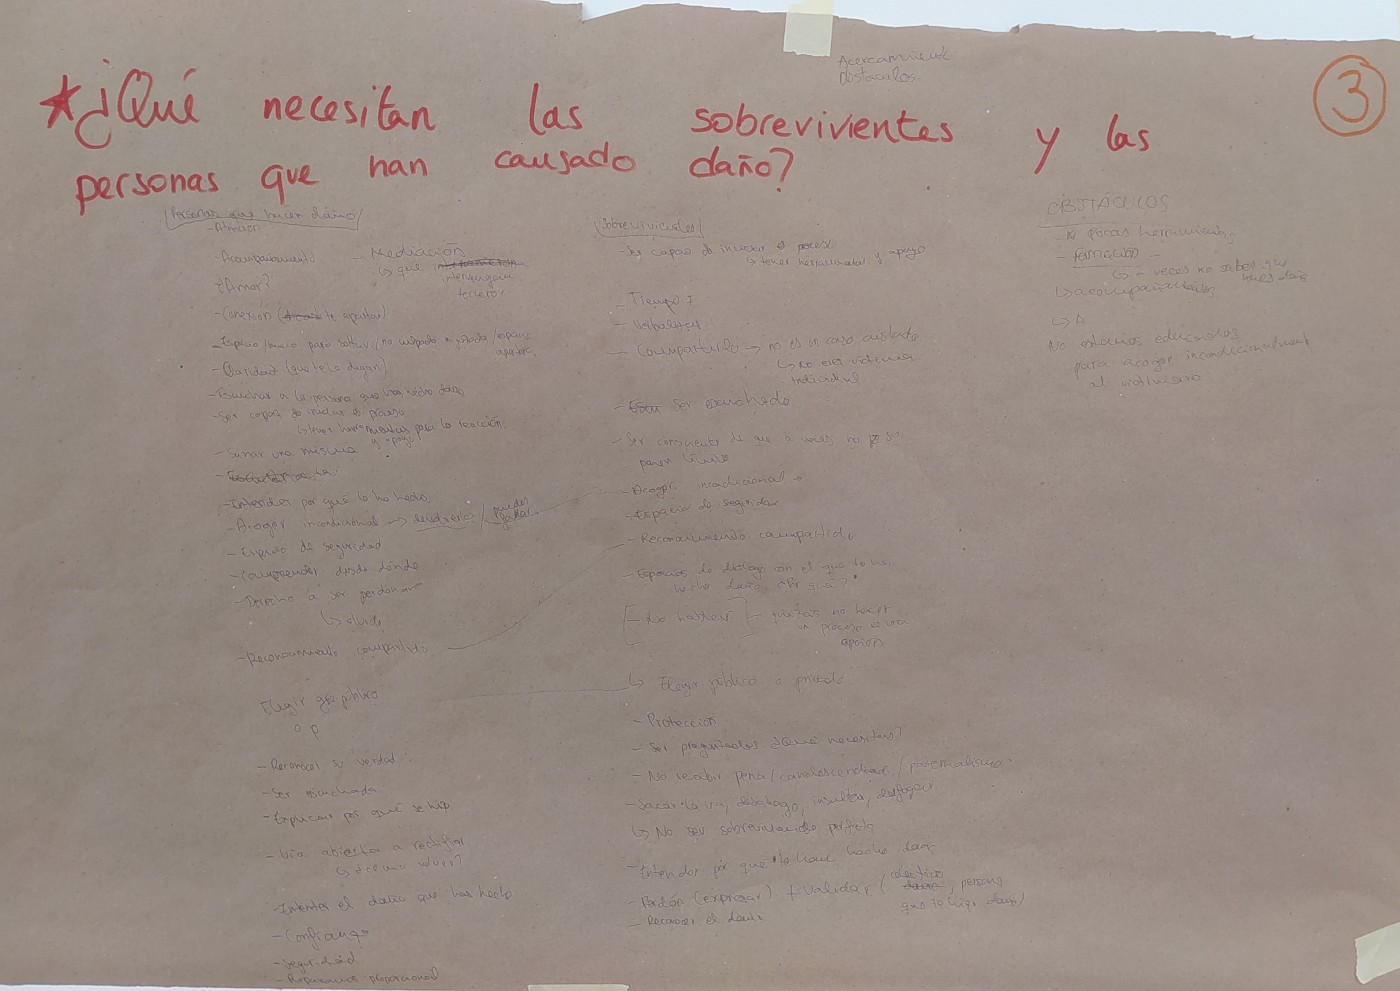 Acercamient
Obstaculos.
3
¿Qué necesitan las sobrevivientes y las
personas que han causado daño?
Personas que hacen daño
- Atención
- Acompañamiento
- Mediación
↳ que
intervengan
terceros
¿Amor?
- Conexión ( te apartar)
- Espacio para soltar
- Claridad (que te lo digan)
- Escuchar a la persona que has hecho daño
- Ser capaz de iniciar el proceso
↳ tener herramientas para la reacción
y apoyo
- Sanar una misma
- Entender por qué lo ha hecho
- Acoger incondicional →
- Espacio de seguridad
- Comprender desde dónde
- Derecho a ser perdonar
↳ olvido
- Reconocimiento compartido
Elegir público
o p
- Reconocer su verdad
- Ser escuchada
- Explicar por qué se hizo
- Vía abierta a rectificar
↳ ¿cómo volver?
- Intentar el daño que has hecho
- Confianza
- Seguridad
- proporcional
Sobrevivientes
- Ser capaz de iniciar el proceso
↳ tener herramientas y apoyo
- Tiempo
- Compartirlo → no es un caso aislado
↳ No eres víctima
individual
- Ser escuchado
- Ser consciente de que a veces no
poner límite
- Acoger incondicional
- Espacio de seguridad
- Reconocimiento compartido
- Espacios de diálogo con el que te ha
hecho daño ¿Por qué?
- quizás no hacer
un proceso es una
opción
↳ Elegir público o privado
- Protección
- Ser preguntados ¿Qué necesitas?
- No recibir pena/condescendencia/paternalismo
- Sacar la ira, desahogo, insultar, desfogar
↳ No ser sobreviviente perfecto
- Entender por qué te han hecho daño
- Perdón (expresar) + validar (colectivo, persona
que te hizo daño)
- Reconocer el daño
OBSTÁCULOS
- pocas herramientas
- formación -
↳ a veces no saber que
haces daño
↳ acompañamiento
↳ A
No estamos educados
para acoger incondicionalmente
al